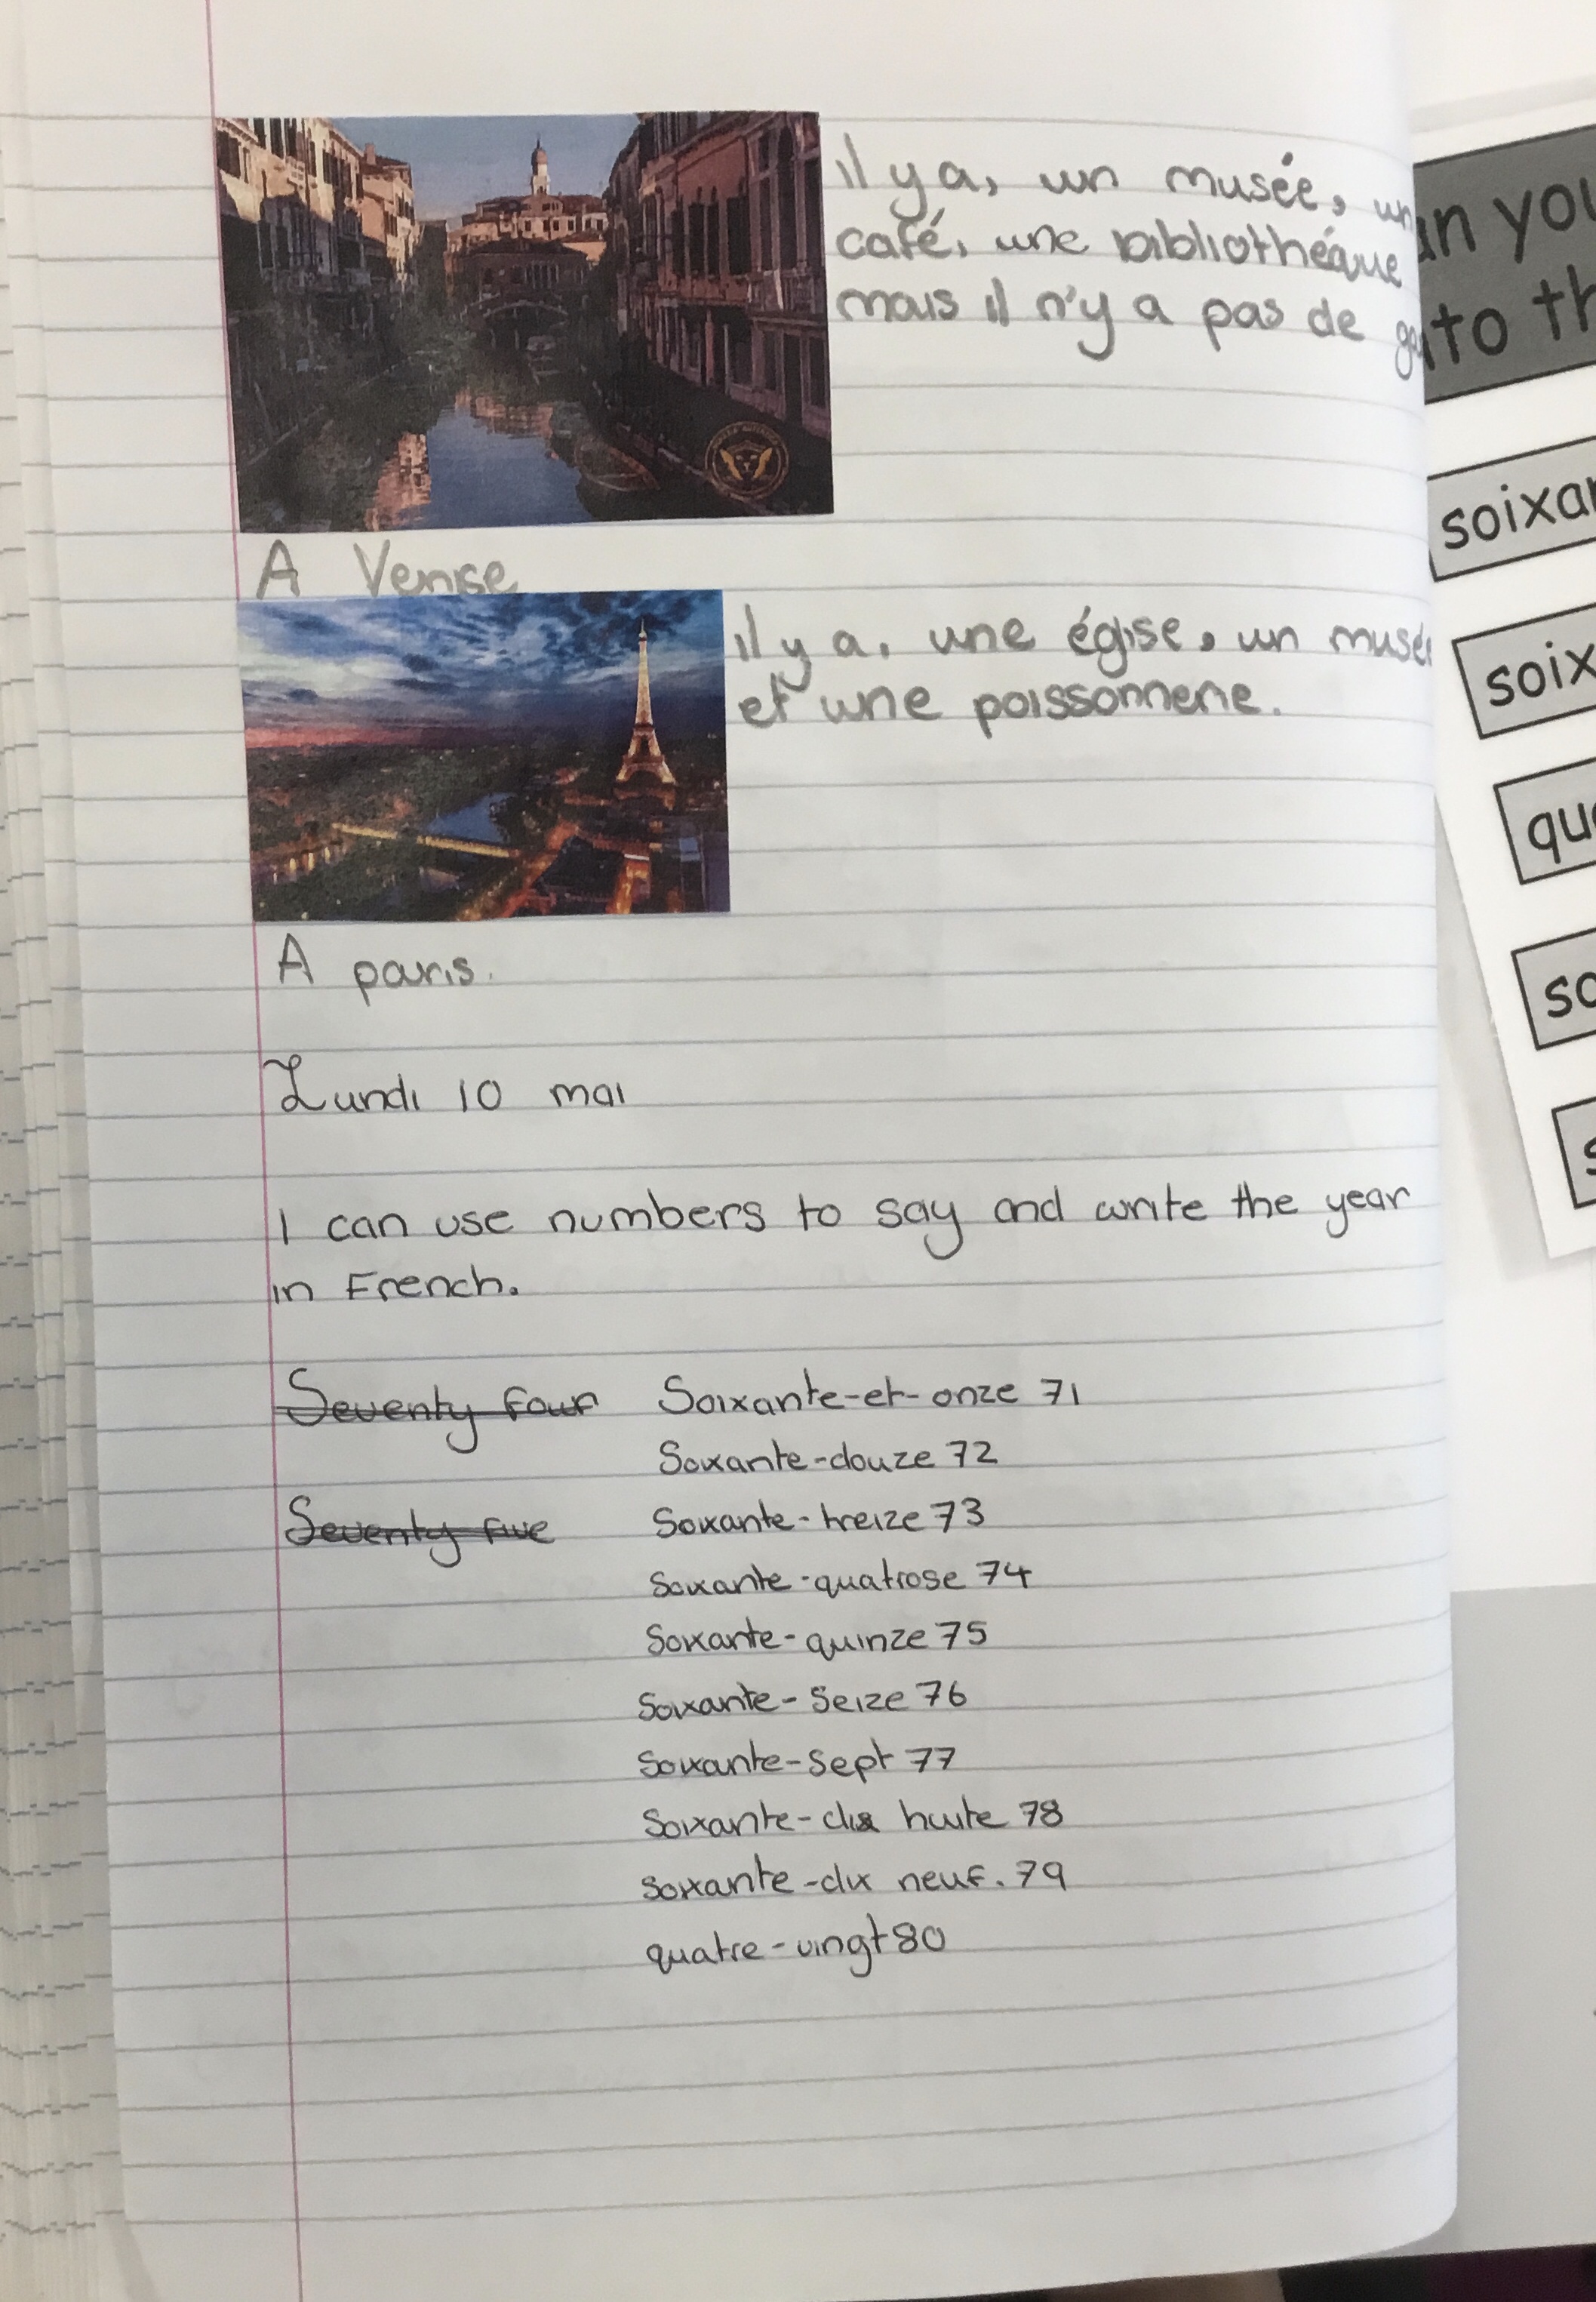 il y a, un musée, un
café, une bibliothéque
mais il n'y a pas de
A Venise
il y a, une église, un musée
et une poissonnerie.
A paris.
Lundi 10 mai
I can use numbers to say and write the year
in French.
Seventy four Soixante-et-onze 71
Soixante-douze 72
Seventy five Soixante-treize 73
Soixante-quatrose 74
Soixante-quinze 75
Soixante-seize 76
Soixante-sept 77
Soixante-dix huite 78
Soixante-dix neuf. 79
quatre-vingt 80
you
to